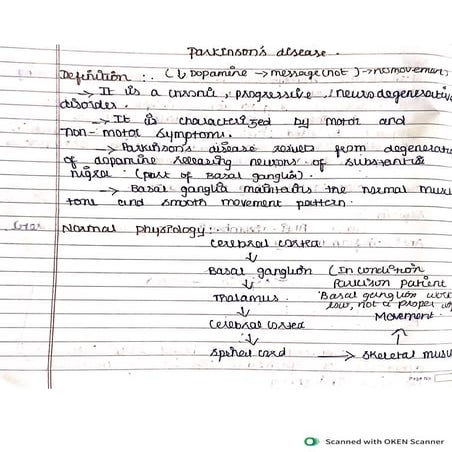 Parkinson's disease.
Definition :. (↓ Dopamine → message(not) → no movement
→ It is a chronic, progressive, neurodegenerative
disorder.
→ It is characterized by motor and
non-motor symptoms.
→ Parkinson's disease results from degenerati
of dopamine releasing neurons of substantia
nigra. (part of Basal ganglia).
→ Basal ganglia maintains the normal mus
tone and smooth movement pattern.
Normal physiology:
cerebral cortex
↓
Basal ganglion (In condition
Parkison patient
↓
Thalamus. Basal ganglion work
low, not a proper
↓ Movement.
Cerebral cortex
↓ ↑
Spinal cord → skeletal mus
Page No.
Scanned with OKEN Scanner